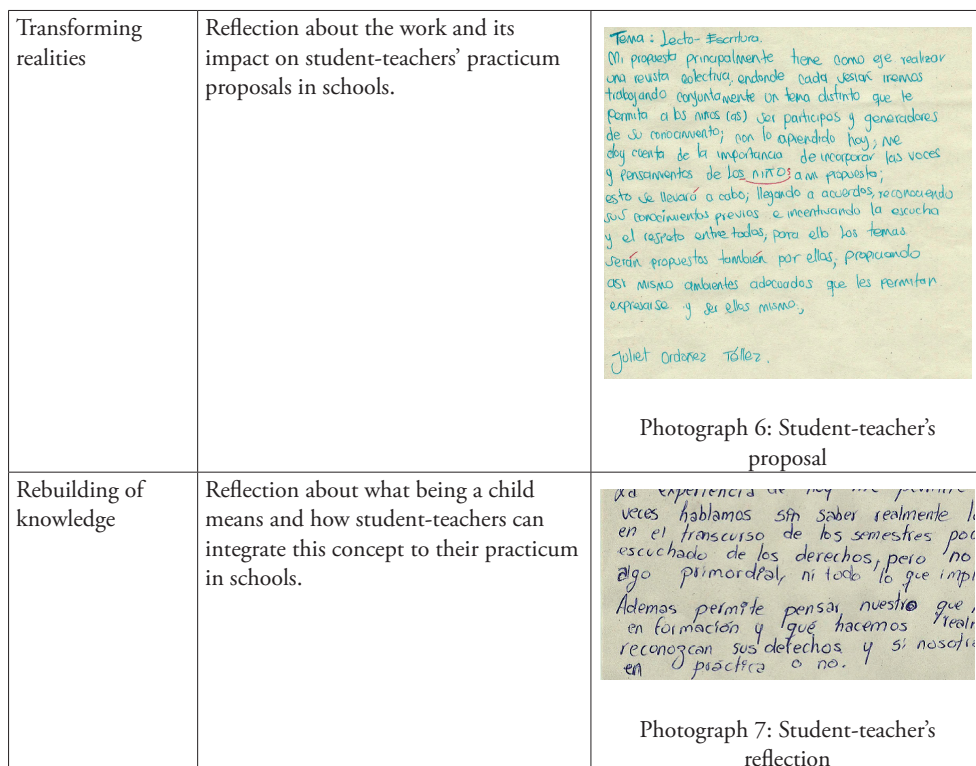 Transforming
realities
Reflection about the work and its
impact on student-teachers' practicum
proposals in schools.
Tema: Lecto-Escritura.
Mi propuesta principalmente tiene como eje realizar
una revista colectiva, endonde cada sesión iremos
trabajando conjuntamente un tema distinto que le
permita a los niños (as) ser participes y generadores
de su conocimiento; con lo aprendido hoy, me
doy cuenta de la importancia de incorporar las voces
y pensamientos de los niños a mi propuesta;
esto se llevará a cabo; llegando a acuerdos, reconociendo
sus conocimientos previos e incentivando la escucha
y el respeto entre todos, para ello los temas
serán propuestos también por ellos, propiciando
asi mismo ambientes adecuados que les permitan
expresarse y ser ellos mismo.,
Juliet Ordoñez Téllez.
Photograph 6: Student-teacher's
proposal
Rebuilding of
knowledge
Reflection about what being a child
means and how student-teachers can
integrate this concept to their practicum
in schools.
experiencia de hoy me permite
veces hablamos sin saber realmente
en el transcurso de los semestres
escuchado de los derechos, pero no
algo primordial, ni todo lo que
Ademas permite pensar nuestro que
en formación y qué hacemos
reconozcan sus derechos y si
en práctica o no.
Photograph 7: Student-teacher's
reflection